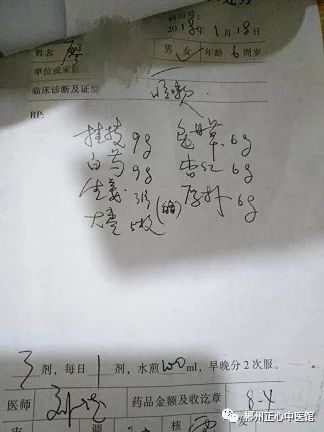 2018年1月18日
姓名 廖 男 女 年龄 6周岁
单位或家庭
临床诊断及证型 咳嗽
RP:
桂枝 9g 炙甘草 6g
白芍 9g 杏仁 6g
生姜 3片 厚朴 6g
大枣
3剂,每日1剂,水煎100ml,早晚分2次服。
医师 药品金额及收讫章 8-4
调 核 发
郴州正心中医馆